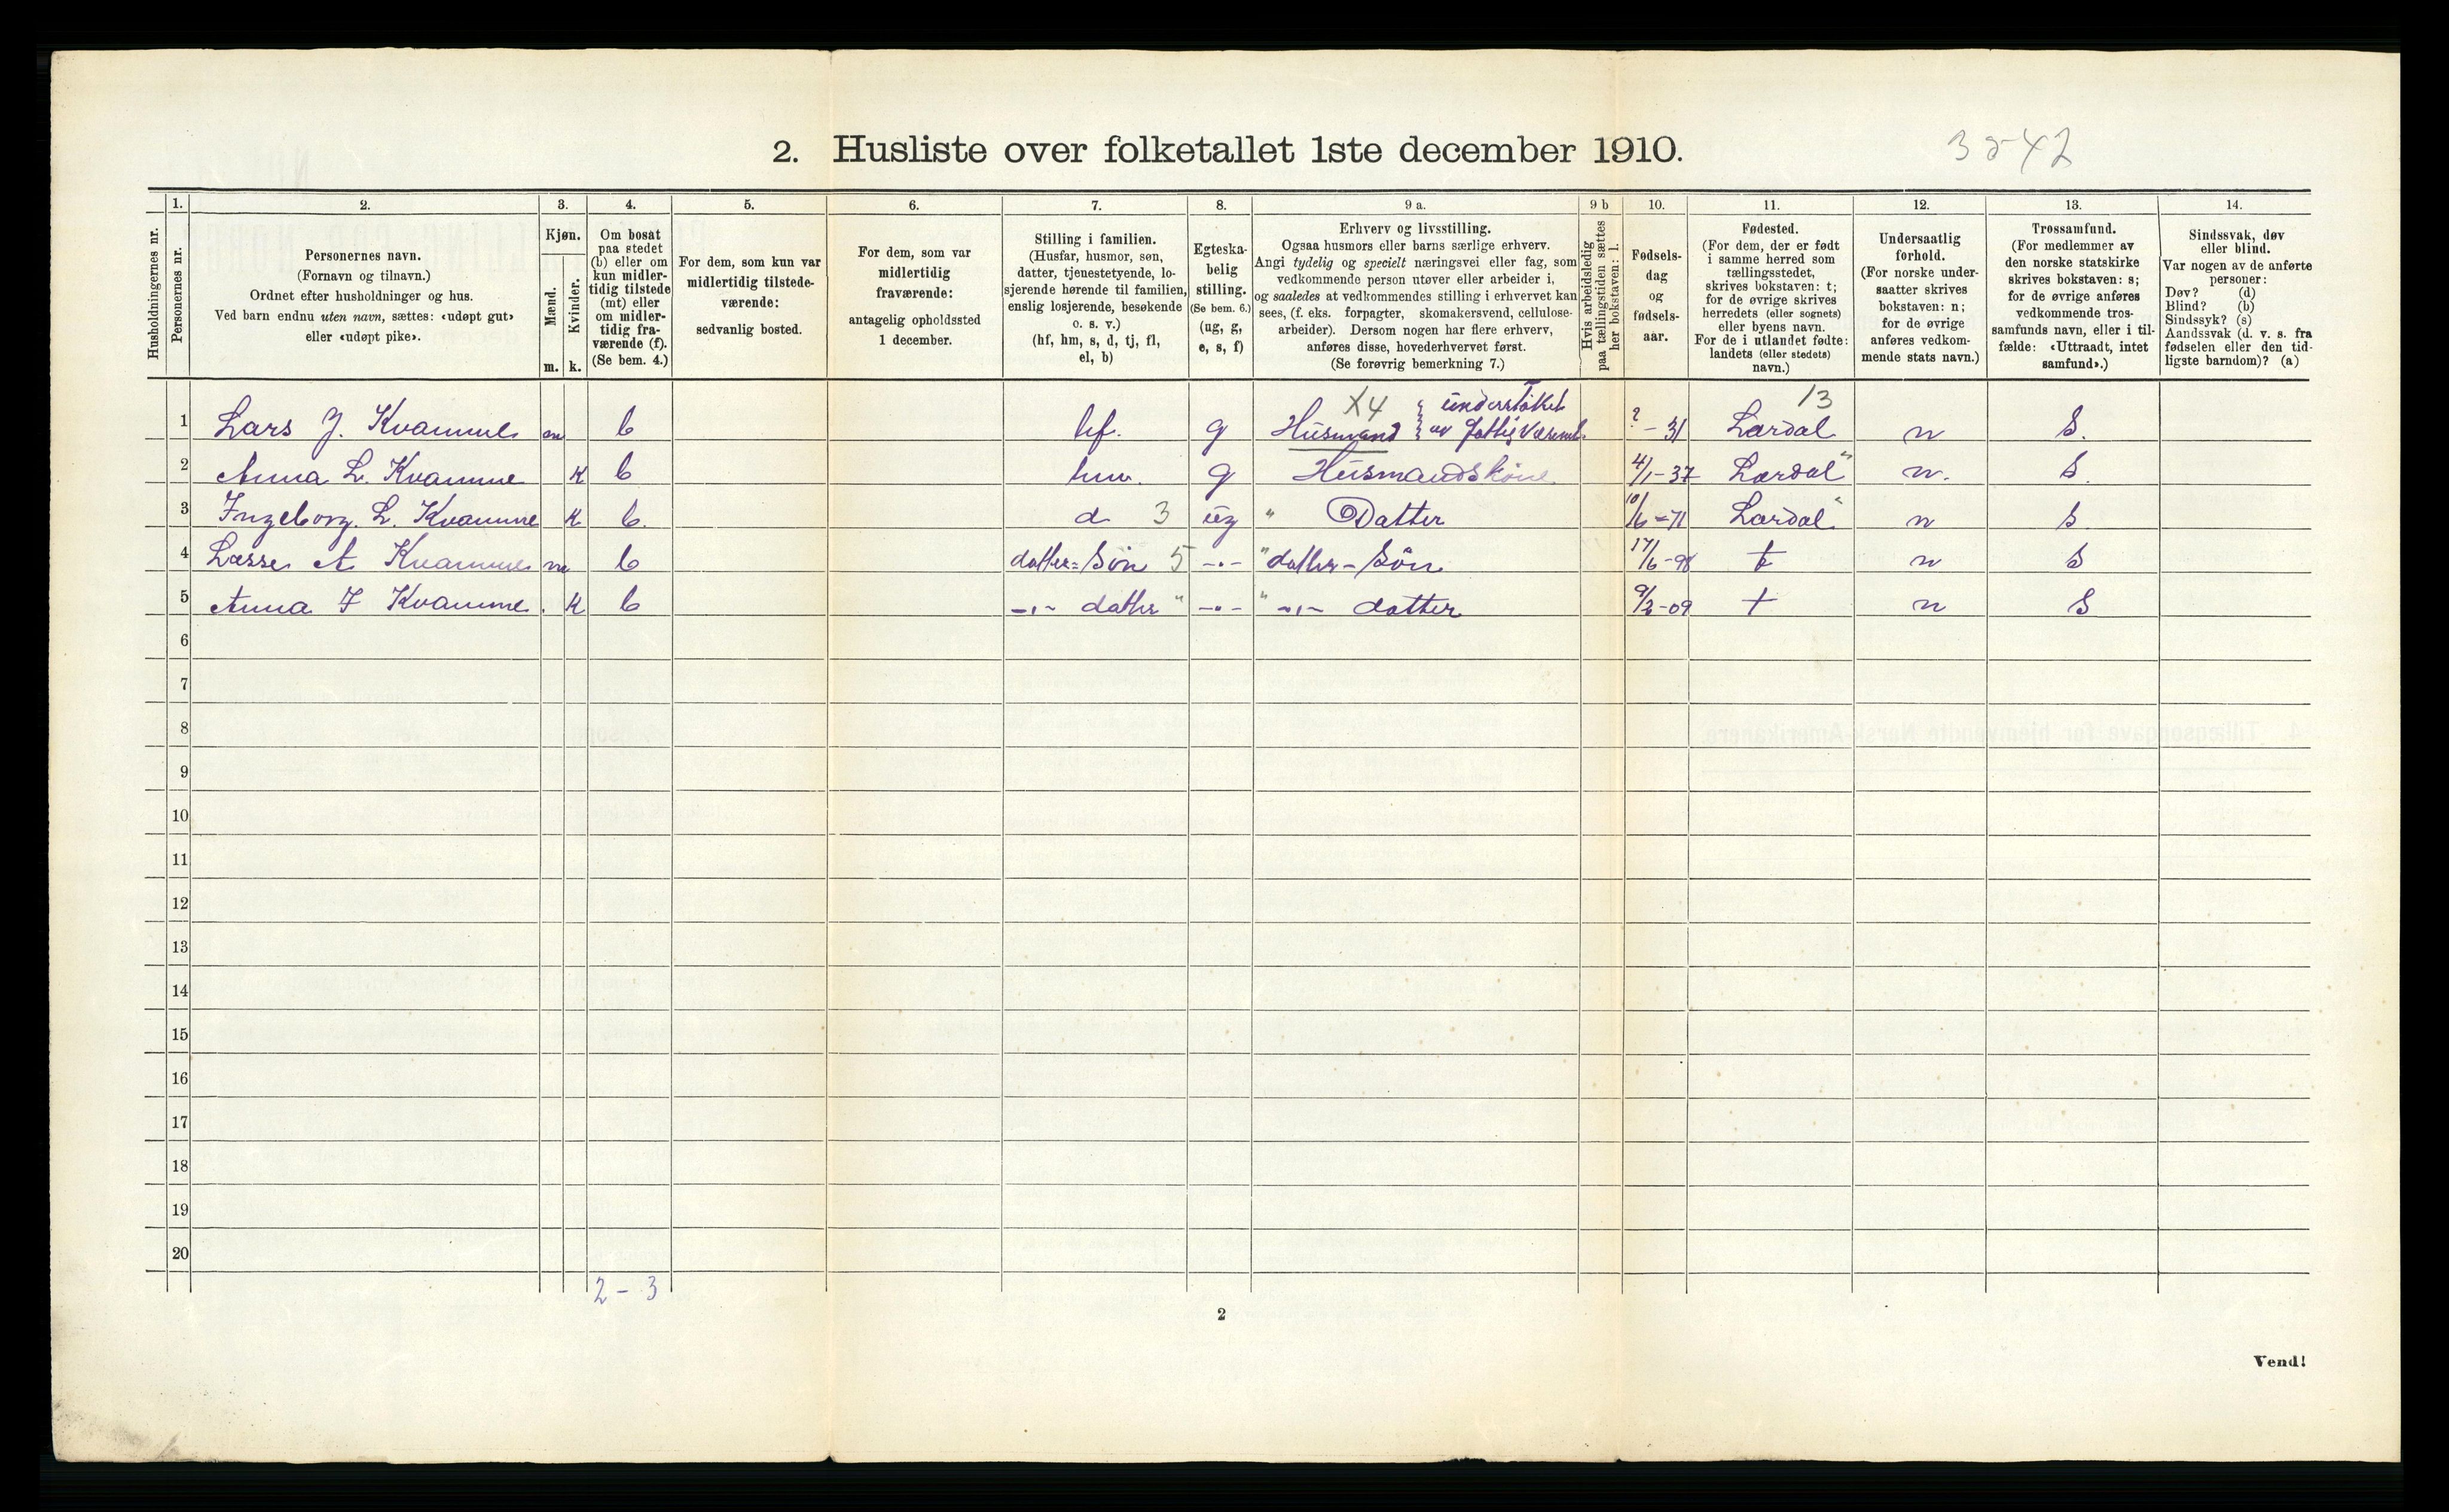 2. Husliste over folketallet 1ste december 1910.
3 5 42
Husholdningernes nr.
1. Personernes nr.
2. Personernes navn. (Fornavn og tilnavn.) Ordnet efter husholdninger og hus. Ved barn endnu uten navn, sættes: «udøpt gut» eller «udøpt pike».
3. Kjøn. Mænd. m. Kvinder. k.
4. Om bosat paa stedet (b) eller om kun midlertidig tilstede (mt) eller om midlertidig fraværende (f). (Se bem. 4.)
5. For dem, som kun var midlertidig tilstedeværende: sedvanlig bosted.
6. For dem, som var midlertidig fraværende: antagelig opholdssted 1 december.
7. Stilling i familien. (Husfar, husmor, søn, datter, tjenestetyende, losjerende hørende til familien, enslig losjerende, besøkende o. s. v.) (hf, hm, s, d, tj, fl, el, b)
8. Egteskabelig stilling. (Se bem. 6.) (ug, g, e, s, f)
9 a. Erhverv og livsstilling. Ogsaa husmors eller barns særlige erhverv. Angi tydelig og specielt næringsvei eller fag, som vedkommende person utøver eller arbeider i, og saaledes at vedkommendes stilling i erhvervet kan sees, (f. eks. forpagter, skomakersvend, cellulosearbeider). Dersom nogen har flere erhverv, anføres disse, hovederhvervet først. (Se forøvrig bemerkning 7.)
9 b Hvis arbeidsledig paa tællingstiden sættes her bokstaven: l.
10. Fødselsdag og fødselsaar.
11. Fødested. (For dem, der er født i samme herred som tællingsstedet, skrives bokstaven: t; for de øvrige skrives herredets (eller sognets) eller byens navn. For de i utlandet fødte: landets (eller stedets) navn.)
12. Undersaatlig forhold. (For norske undersaatter skrives bokstaven: n; for de øvrige anføres vedkommende stats navn.)
13. Trossamfund. (For medlemmer av den norske statskirke skrives bokstaven: s; for de øvrige anføres vedkommende trossamfunds navn, eller i tilfælde: «Uttraadt, intet samfund».)
14. Sindssvak, døv eller blind. Var nogen av de anførte personer: Døv? (d) Blind? (b) Sindssyk? (s) Aandssvak (d. v. s. fra fødselen eller den tidligste barndom)? (a)
1 Lars J. Kvamme m b hf. g X4 Husmand understøttet av Fattigvæsenet ? - 31 13 Lærdal n S.
2 Anna L. Kvamme K b hm. g Husmandskone 4/1-37 Lærdal " n. S.
3 Ingeborg. L. Kvamme K b. d 3 ug " Datter 10/6-71 Lærdal " n S.
4 Lasse A Kvamme m b datter=Søn 5 -"- " datter-Søn 17/6-98 t n S
5 Anna I Kvamme. K b -"- datter " -"- " -"- datter 9/3-09 t n S
6
7
8
9
10
11
12
13
14
15
16
17
18
19
20
2 - 3
2
Vend!